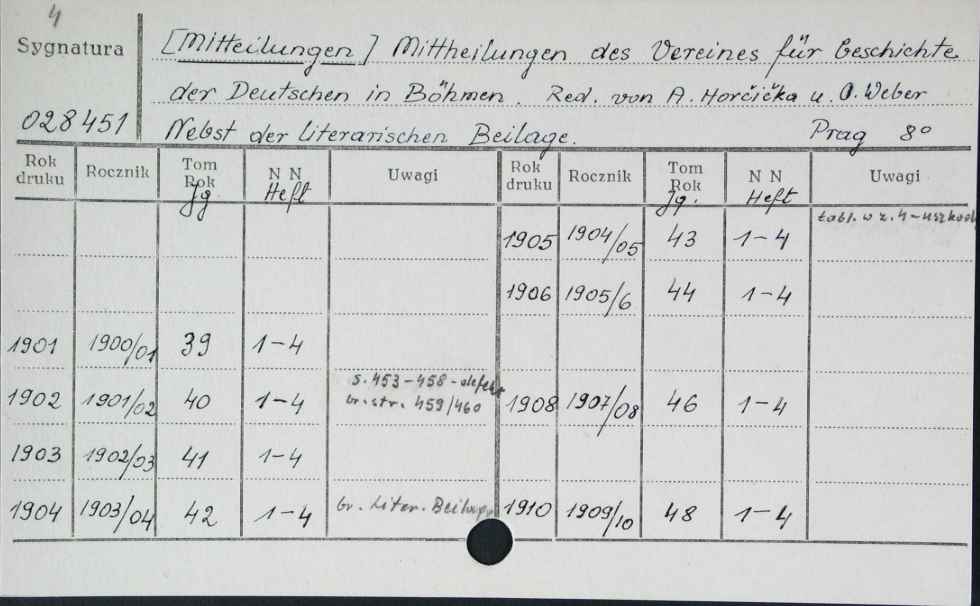 4
Sygnatura
028451
[Mitteilungen] Mittheilungen des Vereines für Geschichte
der Deutschen in Böhmen. Red. von A. Horčička u. O. Weber
Nebst der literarischen Beilage. Prag 8°
Rok druku Rocznik Tom Rok Jg. N N Heft Uwagi Rok druku Rocznik Tom Rok Jg. N N Heft Uwagi
1905 1904/05 43 1-4 tabl. w z. 4-uszkodz
1906 1905/6 44 1-4
1901 1900/01 39 1-4
1902 1901/02 40 1-4 s. 453-458-defekt br. str. 459/460 1908 1907/08 46 1-4
1903 1902/03 41 1-4
1904 1903/04 42 1-4 br. Liter. Beilage 1910 1909/10 48 1-4